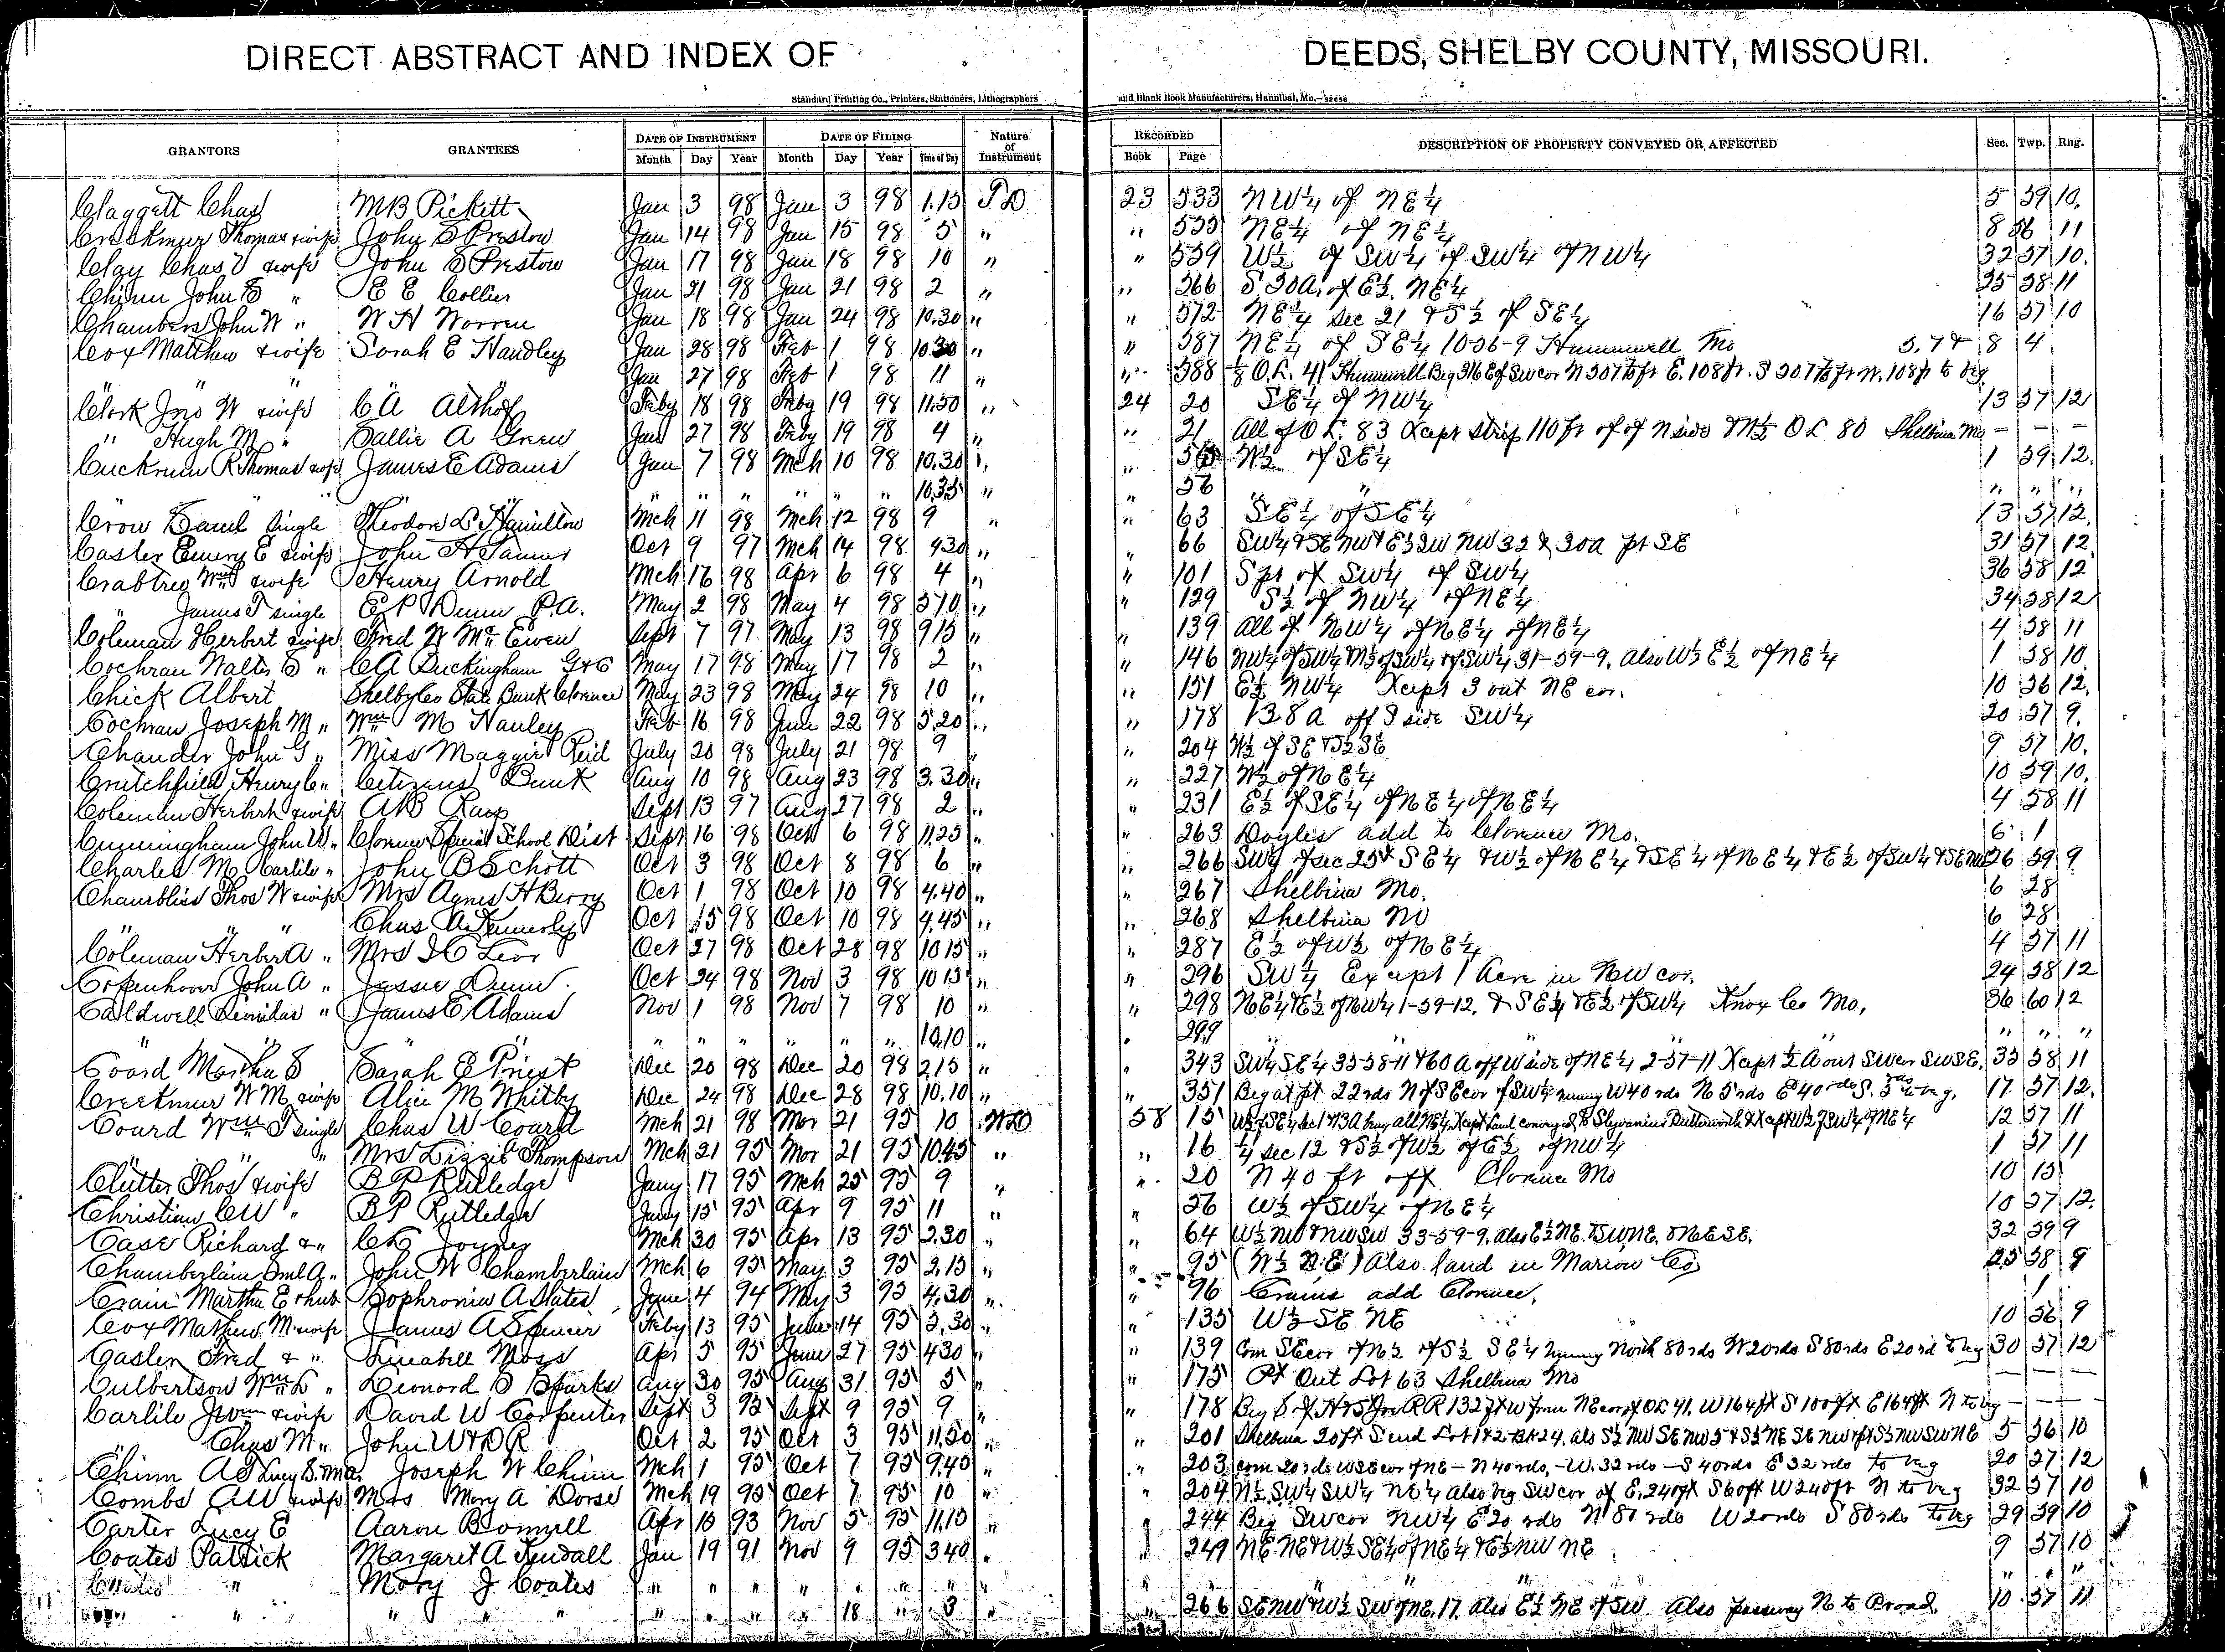 DIRECT ABSTRACT AND INDEX OF DEEDS, SHELBY COUNTY, MISSOURI.
Standard Printing Co., Printers, Stationers, Lithographers and Blank Book Manufacturers, Hannibal, Mo.
GRANTORS GRANTEES DATE OF INSTRUMENT DATE OF FILING Nature of Instrument RECORDED DESCRIPTION OF PROPERTY CONVEYED OR AFFECTED Sec. Twp. Rng.
Month Day Year Month Day Year Time of Day Book Page
Claggett Chas MB Pickett Jan 3 98 Jan 3 98 1.15 TD 23 533 NW¼ of NE¼ 5 59 10.
Thomas & wife John S Preston Jan 14 98 Jan 15 98 5 " " 535 NE¼ of NE¼ 8 56 11
Clay Chas & wife John S Preston Jan 17 98 Jan 18 98 10 " " 539 W½ of SW¼ of SW¼ of NW¼ 32 57 10.
Chinn John " E E Collier Jan 21 98 Jan 21 98 2 " " 566 S 30A. of E½ NE¼ 35 58 11
Chambers John W " W H Warren Jan 18 98 Jan 24 98 10.30 " " 572 NE¼ Sec 21 & S½ of SE¼ 16 57 10
Cox Matthew & wife Sarah E Handley Jan 28 98 Feb 1 98 10.30 " " 587 NE¼ of SE¼ 10-56-9 Hunnewell Mo 5, 7 & 8 4
" " Jan 27 98 Feb 1 98 11 " " 588 O.L. 41 Hunnewell
Clark Jno W & wife C A Althof Feby 18 98 Feby 19 98 11.50 " 24 20 SE¼ of NW¼ 13 57 12
" Hugh M " Sallie A Green Jan 27 98 Feby 19 98 4 " " 21 All of O L. 83 Xcept strip 110 ft of of N side & N½ O L 80 Shelbina Mo — — —
R Thomas & wife James E Adams Jan 7 98 Mch 10 98 10.30 " " W½ of SE¼ 1 59 12.
" " " " " " " " 10.35 " " 56 " " " "
Crow single Theodore L Hamilton Mch 11 98 Mch 12 98 9 " " 63 SE¼ of SE¼ 13 57 12.
Casler Emery E & wife John H Oct 9 97 Mch 14 98 430 " " 66 31 57 12
Crabtree Wm & wife Henry Arnold Mch 16 98 Apr 6 98 4 " " 101 S pt of SW¼ of SW¼ 36 58 12
" James T single E P Dunn P.A. May 2 98 May 4 98 510 " " 129 S½ of NW¼ of NE¼ 34 58 12
Coleman Herbert & wife Fred W McEwen Sept 7 97 May 13 98 915 " " 139 All of NW¼ of NE¼ of NE¼ 4 58 11
Cochran Walter S " CA Buckingham G&C May 17 98 May 17 98 2 " " 146 NW¼ of SW¼ N½ of SW¼ of SW¼ 31-59-9, Also W½ E½ of NE¼ 1 58 10
Chick Albert Shelby Co State Bank Clarence May 23 98 May 24 98 10 " " 151 E½ NW¼ Xcept 3 out NE cor. 10 56 12.
Cochran Joseph M " Wm M Hanley Feb 16 98 June 22 98 5.20 " " 178 138 a off S side SW¼ 20 57 9.
John " Miss Maggie Reid July 20 98 July 21 98 9 " " 204 W½ of SE & S½ SE 9 57 10.
Critchfield Henry C " Citizens Bank Aug 10 98 Aug 23 98 3.30 " " 227 W½ of NE¼ 10 59 10.
Coleman Herbert & wife AB Sept 13 97 Aug 27 98 2 " " 231 E½ of SE¼ of NE¼ of NE¼ 4 58 11
Cunningham John W " Clarence Special School Dist Sept 16 98 Oct 6 98 11.25 " " 263 Doyles add to Clarence Mo. 6 1
Charles M Carlile " John B Schott Oct 3 98 Oct 8 98 6 " " 266 SW¼ of Sec 25 & SE¼ & W½ of NE¼ & SE¼ of NE¼ & E½ of SW¼ & SE NW 26 59 9
Chambliss Thos W & wife Mrs Agnes H Berry Oct 1 98 Oct 10 98 4.40 " " 267 Shelbina Mo. 6 28
" " Chas A Oct 15 98 Oct 10 98 4.45 " " 268 Shelbina Mo 6 28
Coleman Herber A " Mrs Oct 27 98 Oct 28 98 10 15 " " 287 E½ of W½ of NE¼ 4 57 11
Copenhaver John A " Jessie Dunn Oct 24 98 Nov 3 98 10 15 " " 296 SW¼ Except 1 Acre in NW cor. 24 58 12
Caldwell Leonidas " James E Adams Nov 1 98 Nov 7 98 10 " " 298 NE¼ & E½ of NW¼ 1-59-12, & SE¼ & E½ of SW¼ Knox Co Mo, 36 60 12
" " " " " " " " " 10.10 " " 299 " " " " "
Coard Martha S Sarah E Priest Dec 20 98 Dec 20 98 2,15 " " 343 SW¼ SE¼ 35-58-11 & 60 A off W side of NE¼ 2-57-11 Xcept ½ A out SW cor SW SE. 35 58 11
Creekmur W M & wife Alice M Whitby Dec 24 98 Dec 28 98 10.10 " " 351 Beg at pt 22 rds N of SE cor of SW¼ runing W 40 rds N 5 rds E 40 rds S. 5 rds to beg. 17 57 12.
Coard Wm T single Chas W Coard Mch 21 98 Mar 21 95 10 WD 58 15 12 57 11
" " " Mrs Lizzie A Thompson Mch 21 95 Mar 21 95 10.45 " " 16 ¼ sec 12 & S½ of W½ of E½ of NW¼ 1 57 11
Clutter Thos & wife B P Rutledge Jany 17 95 Mch 25 95 9 " " 20 N 40 ft off Clarence Mo 10 15
Christian CW " B P Rutledge Jany 15 95 Apr 9 95 11 " " 56 W½ of SW¼ of NE¼ 10 57 12.
Case Richard & " C Joyner Mch 30 95 Apr 13 95 2.30 " " 64 W½ NW & NW SW 33-59-9. also E½ NE. & SW NE. & NE SE. 32 59 9
Chamberlain Saml A. " John W Chamberlain Mch 6 95 May 3 95 2.15 " " 95 (W½ N.E.) Also land in Marion Co 25 58 9
Crain Martha E & hub Sophronia A Slates June 4 94 May 3 95 4.30 " " 96 Crains add Clarence, 1
Cox Mathew M & wife James A Spencer Feby 13 95 June 14 95 3.30 " " 135 W½ SE NE 10 56 9
Casler Fred & " Moss Apr 5 95 June 27 95 430 " " 139 Com SE cor of N½ of S½ SE¼ runing North 80 rds W 20 rds S 80 rds E 20 rd to beg 30 57 12
Culbertson Wm L " Leonard D Sparks Aug 30 95 Aug 31 95 5 " " 175 Pt Out Lot 63 Shelbina Mo — — —
Carlile J Wm & wife David W Carpenter Sept 3 95 Sept 9 95 9 " " 178 Beg S of H & St Joe RR 132 ft W from NE cor of OL 41. W 164 ft S 100 ft E 164 ft N to beg — — —
" Chas M " John W & D R Oct 2 95 Oct 3 95 11,50 " " 201 Shelbina 20 ft S end Lot 1 & 2 Bk 24. 5 56 10
Chinn A Lucy S. Joseph W Chinn Mch 1 95 Oct 7 95 9.45 " " 203 com 20 rds W SE cor of NE - N 40 rds, - W. 32 rds - S 40 rds E 32 rds to beg 20 57 12
Combs AW & wife Mrs Mary A Dorse Mch 19 95 Oct 7 95 10 " " 204 N½ SW¼ SW¼ NE¼ Also beg SW cor of E. 240 ft S 60 ft W 240 ft N to beg 32 57 10
Carter Lucy E Aaron B Apr 15 93 Nov 5 95 11,15 " " 244 Beg SW cor NW¼ E 20 rds N 80 rds W 20 rds S 80 rds to beg 29 59 10
Coates Patrick Margaret A Kendall Jan 19 91 Nov 9 95 340 " " 249 NE NE & W½ SE¼ of NE¼ & E½ NW NE 9 57 10
" Mary J Coates " " " " " " " " " " " "
" " " " " " " " 18 " 3 " 266 SE NW & W½ SW of NE. 17. Also E½ NE of SW Also passway N to Broad. 10 57 11